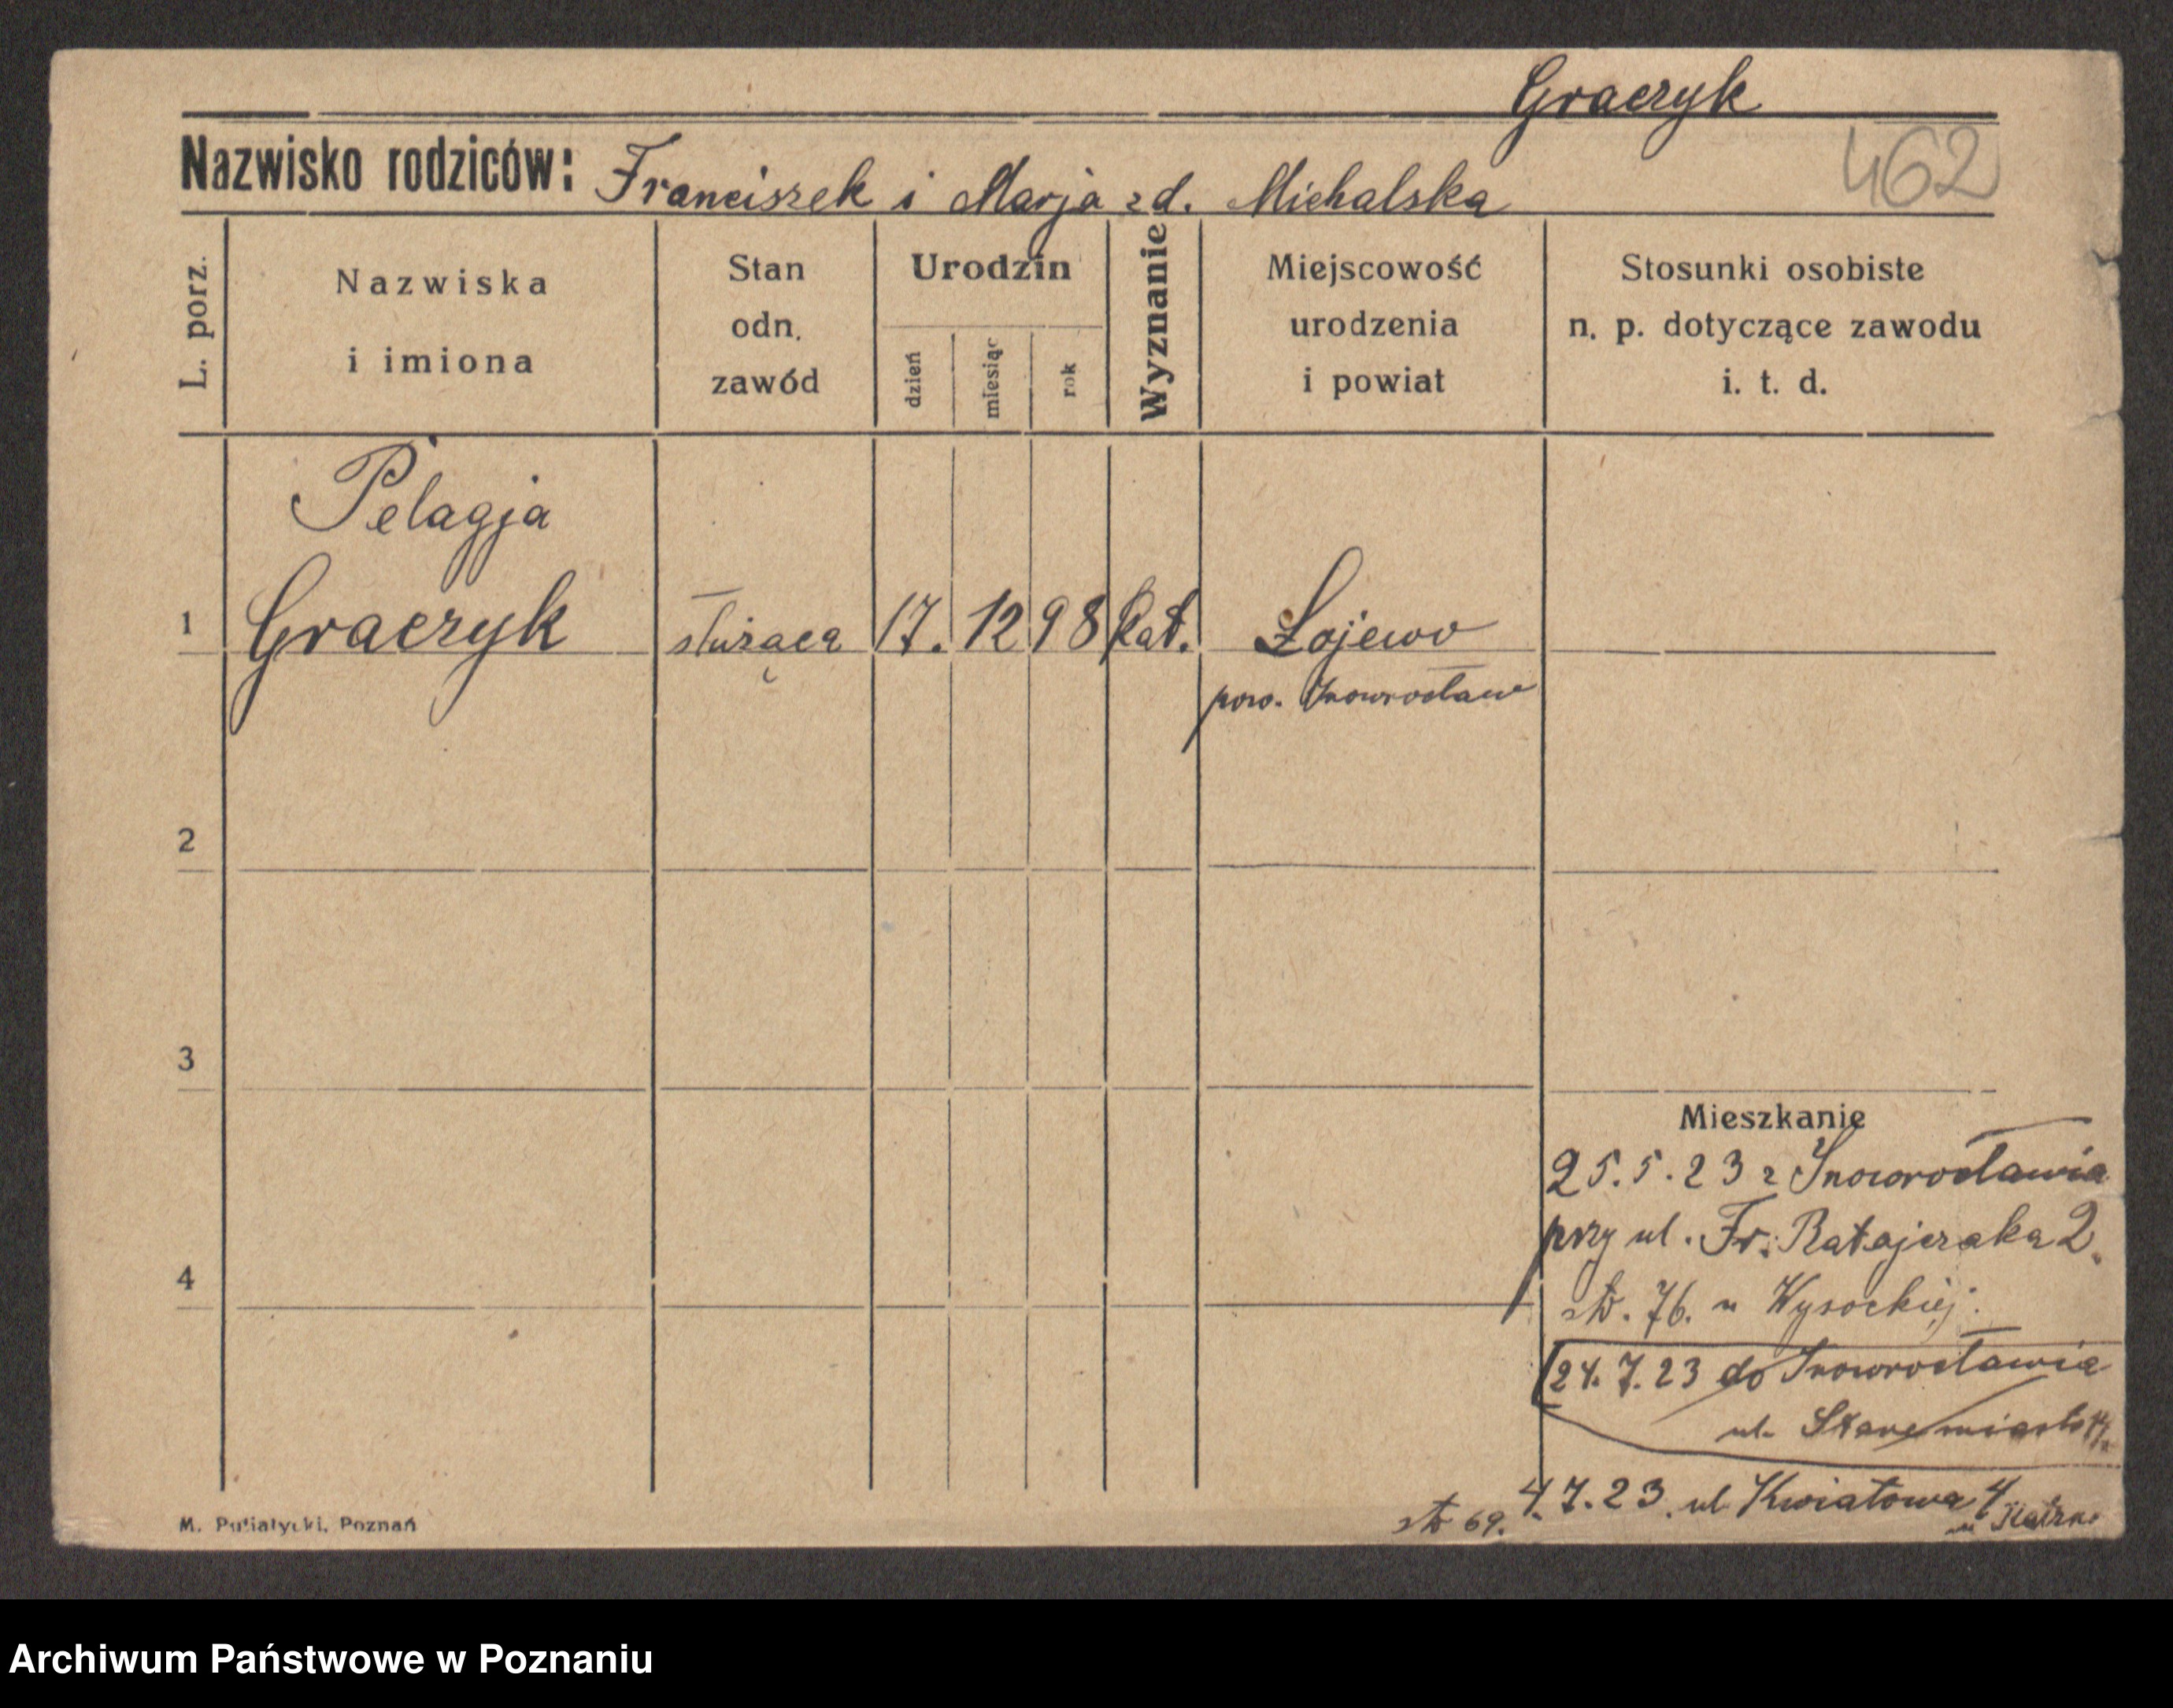 Graczyk
462
Nazwisko rodziców: Franciszek i Marja zd. Michalska
L. porz.
Nazwiska
i imiona
Stan
odn.
zawód
Urodzin
dzień
miesiąc
rok
Wyznanie
Miejscowość
urodzenia
i powiat
Stosunki osobiste
n. p. dotyczące zawodu
i. t. d.
Pelagja
1 Graczyk służąca 17. 12 98 kat. Łojewo
pow. Inowrocław
2
3
Mieszkanie
25.5.23 z Inowrocławia
przy ul. Fr. Ratajczaka 2.
4
str. 76. u Wysockiej.
24.7.23 do Inowrocławia
ul. Stare miasto
4.7.23. ul Kwiatowa 4
str 69.
M. Putiatycki, Poznań
Archiwum Państwowe w Poznaniu